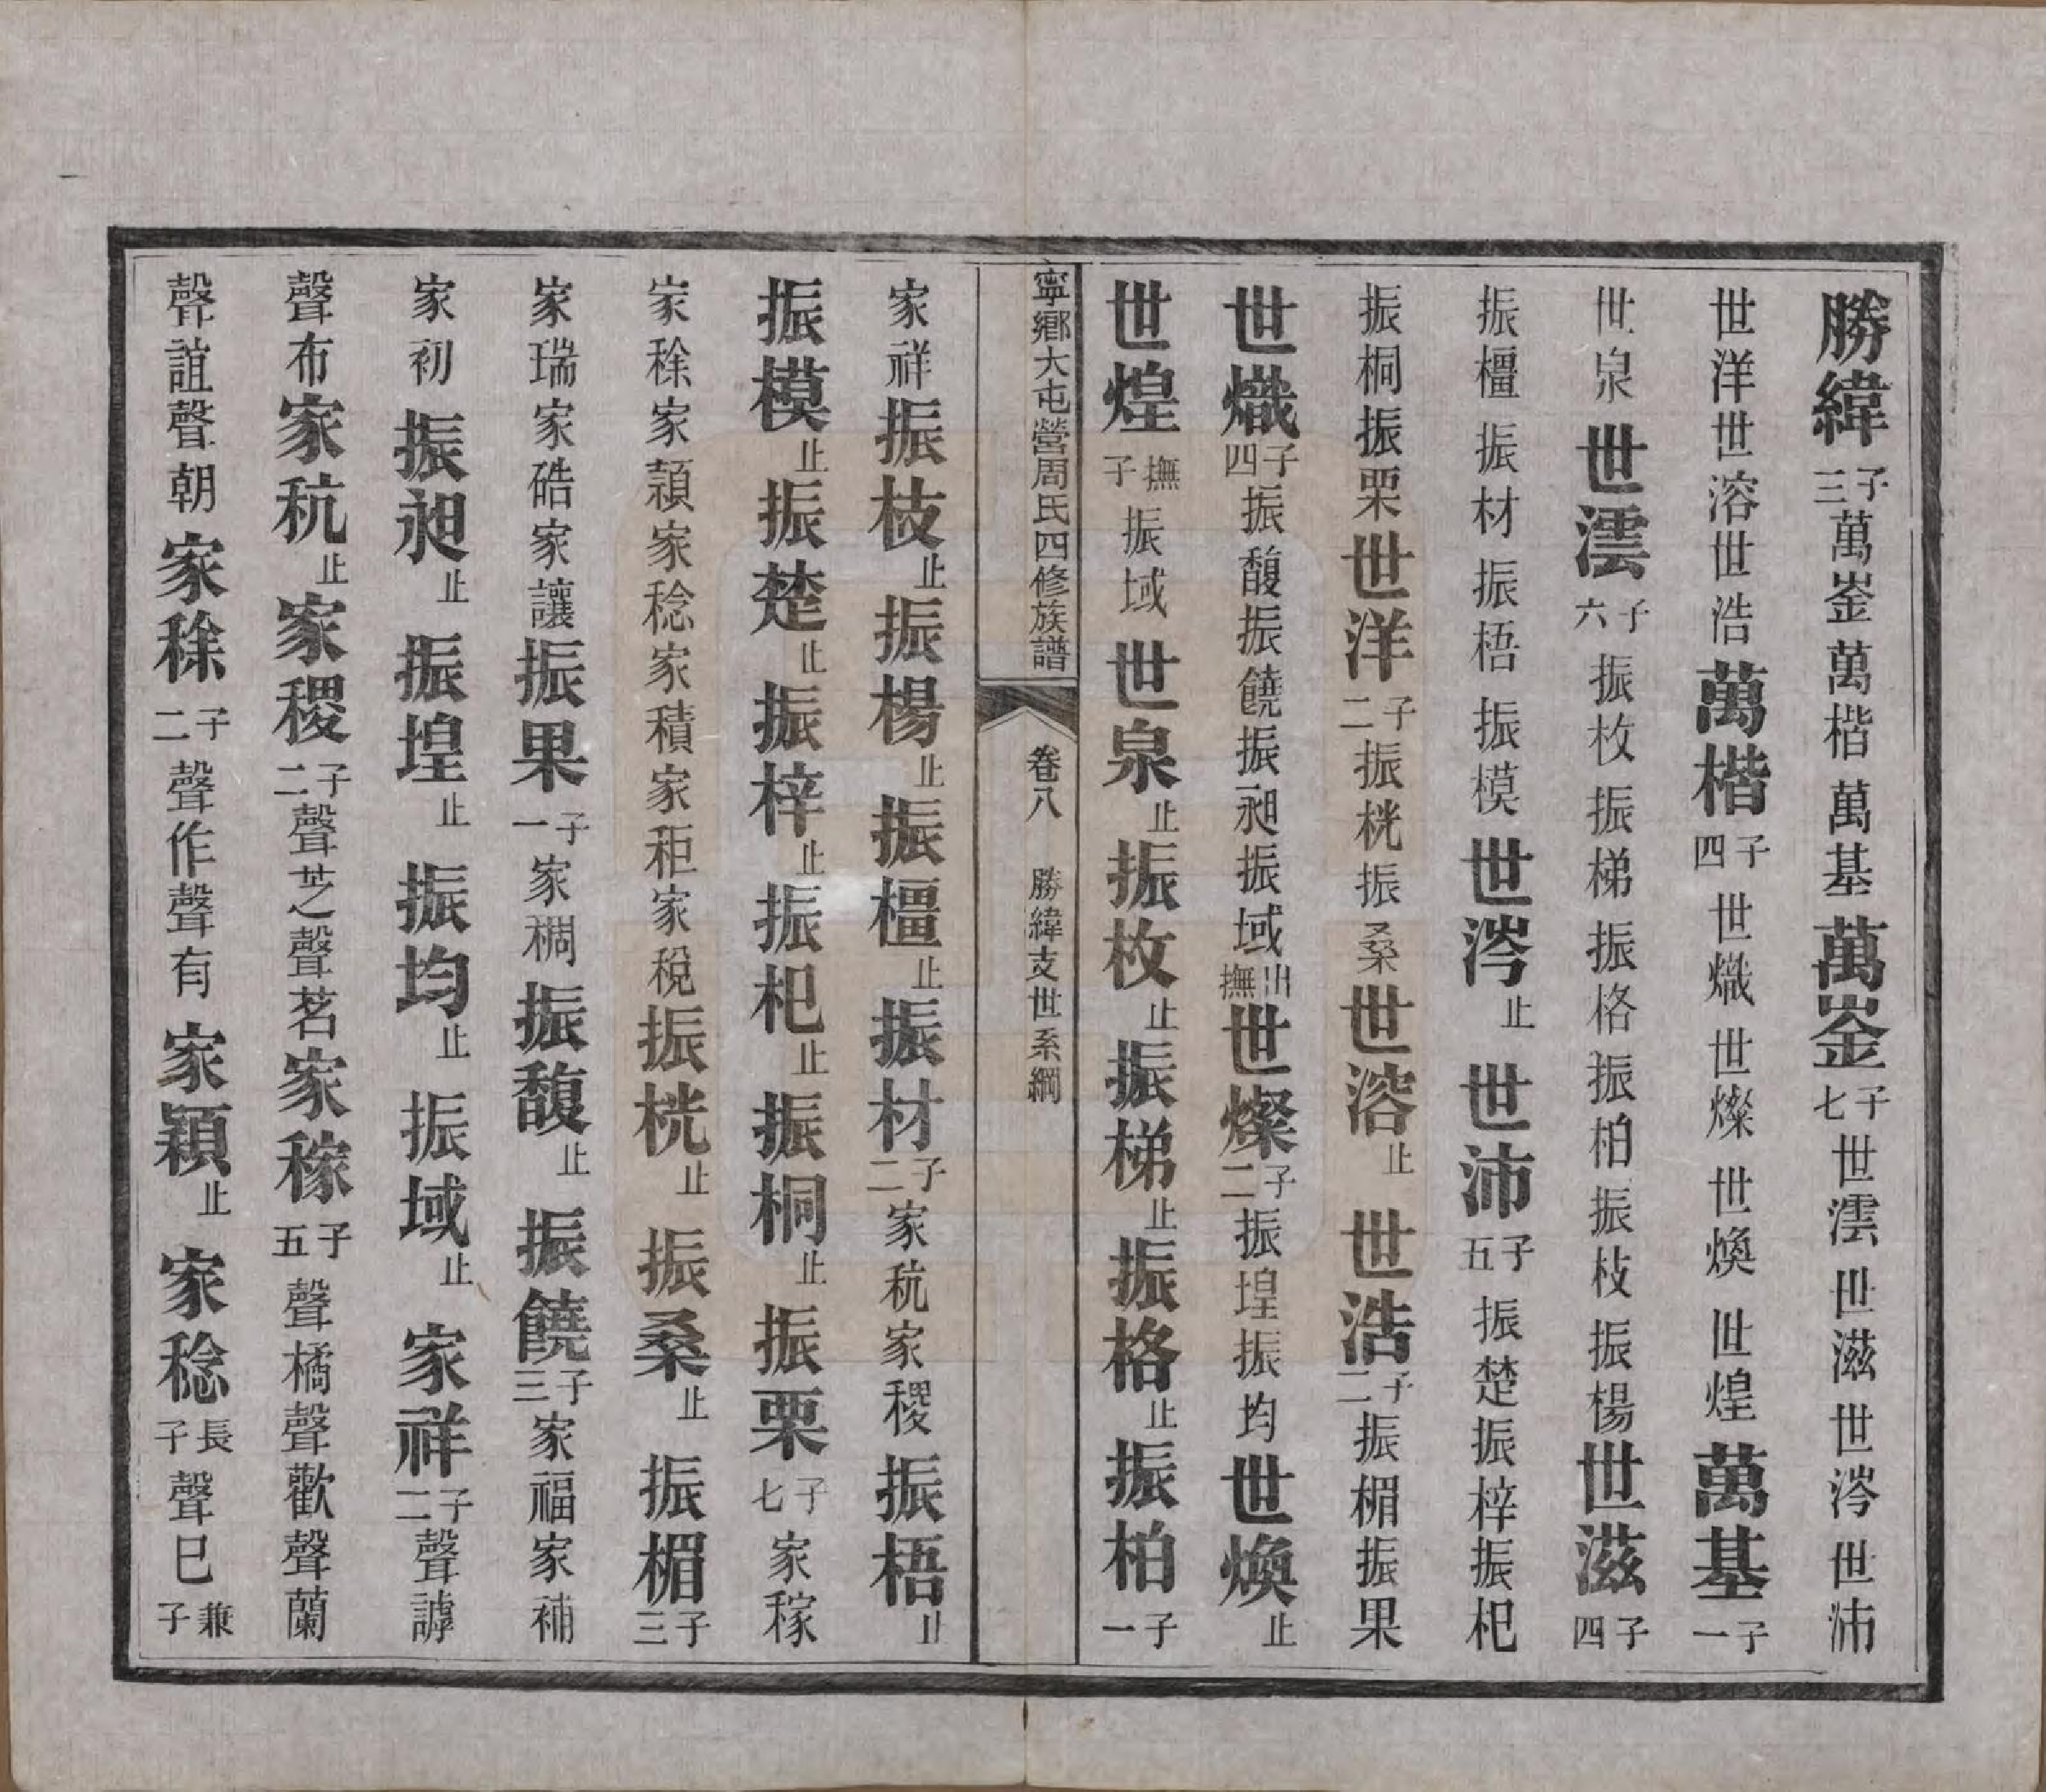 勝緯子三萬崟萬楷萬基萬崟子七世澐世滋世涔世沛
世洋世溶世浩萬楷子四世熾世燦世煥世煌萬基子一
世泉世澐子六振枚振梯振格振柏振枝振楊世滋子四
振橿振材振梧振模世涔止世沛子五振楚振梓振杞
振桐振栗世洋子二振桄振桑世溶止世浩子二振楣振果
世熾子四振馥振饒振昶振域出撫世燦子二振堭振均世煥止
世煌撫子振域世泉止振枚止振梯止振格止振柏子一
寧鄉大屯營周氏四修族譜
卷八
勝緯支世系綱
家祥振枝止振楊止振橿止振材子二家秔家稷振梧止
振模止振楚止振梓止振杞止振桐止振栗子七家稼
家稌家穎家稔家積家秬家稅振桄止振桑止振楣子三
家瑞家硞家讓振果子一家稠振馥止振饒子三家福家補
家初振昶止振堭止振均止振域止家祥子二聲謼
聲布家秔止家稷子二聲芝聲茗家稼子五聲橘聲歡聲蘭
聲誼聲朝家稌子二聲作聲有家穎止家稔長子聲巳兼子